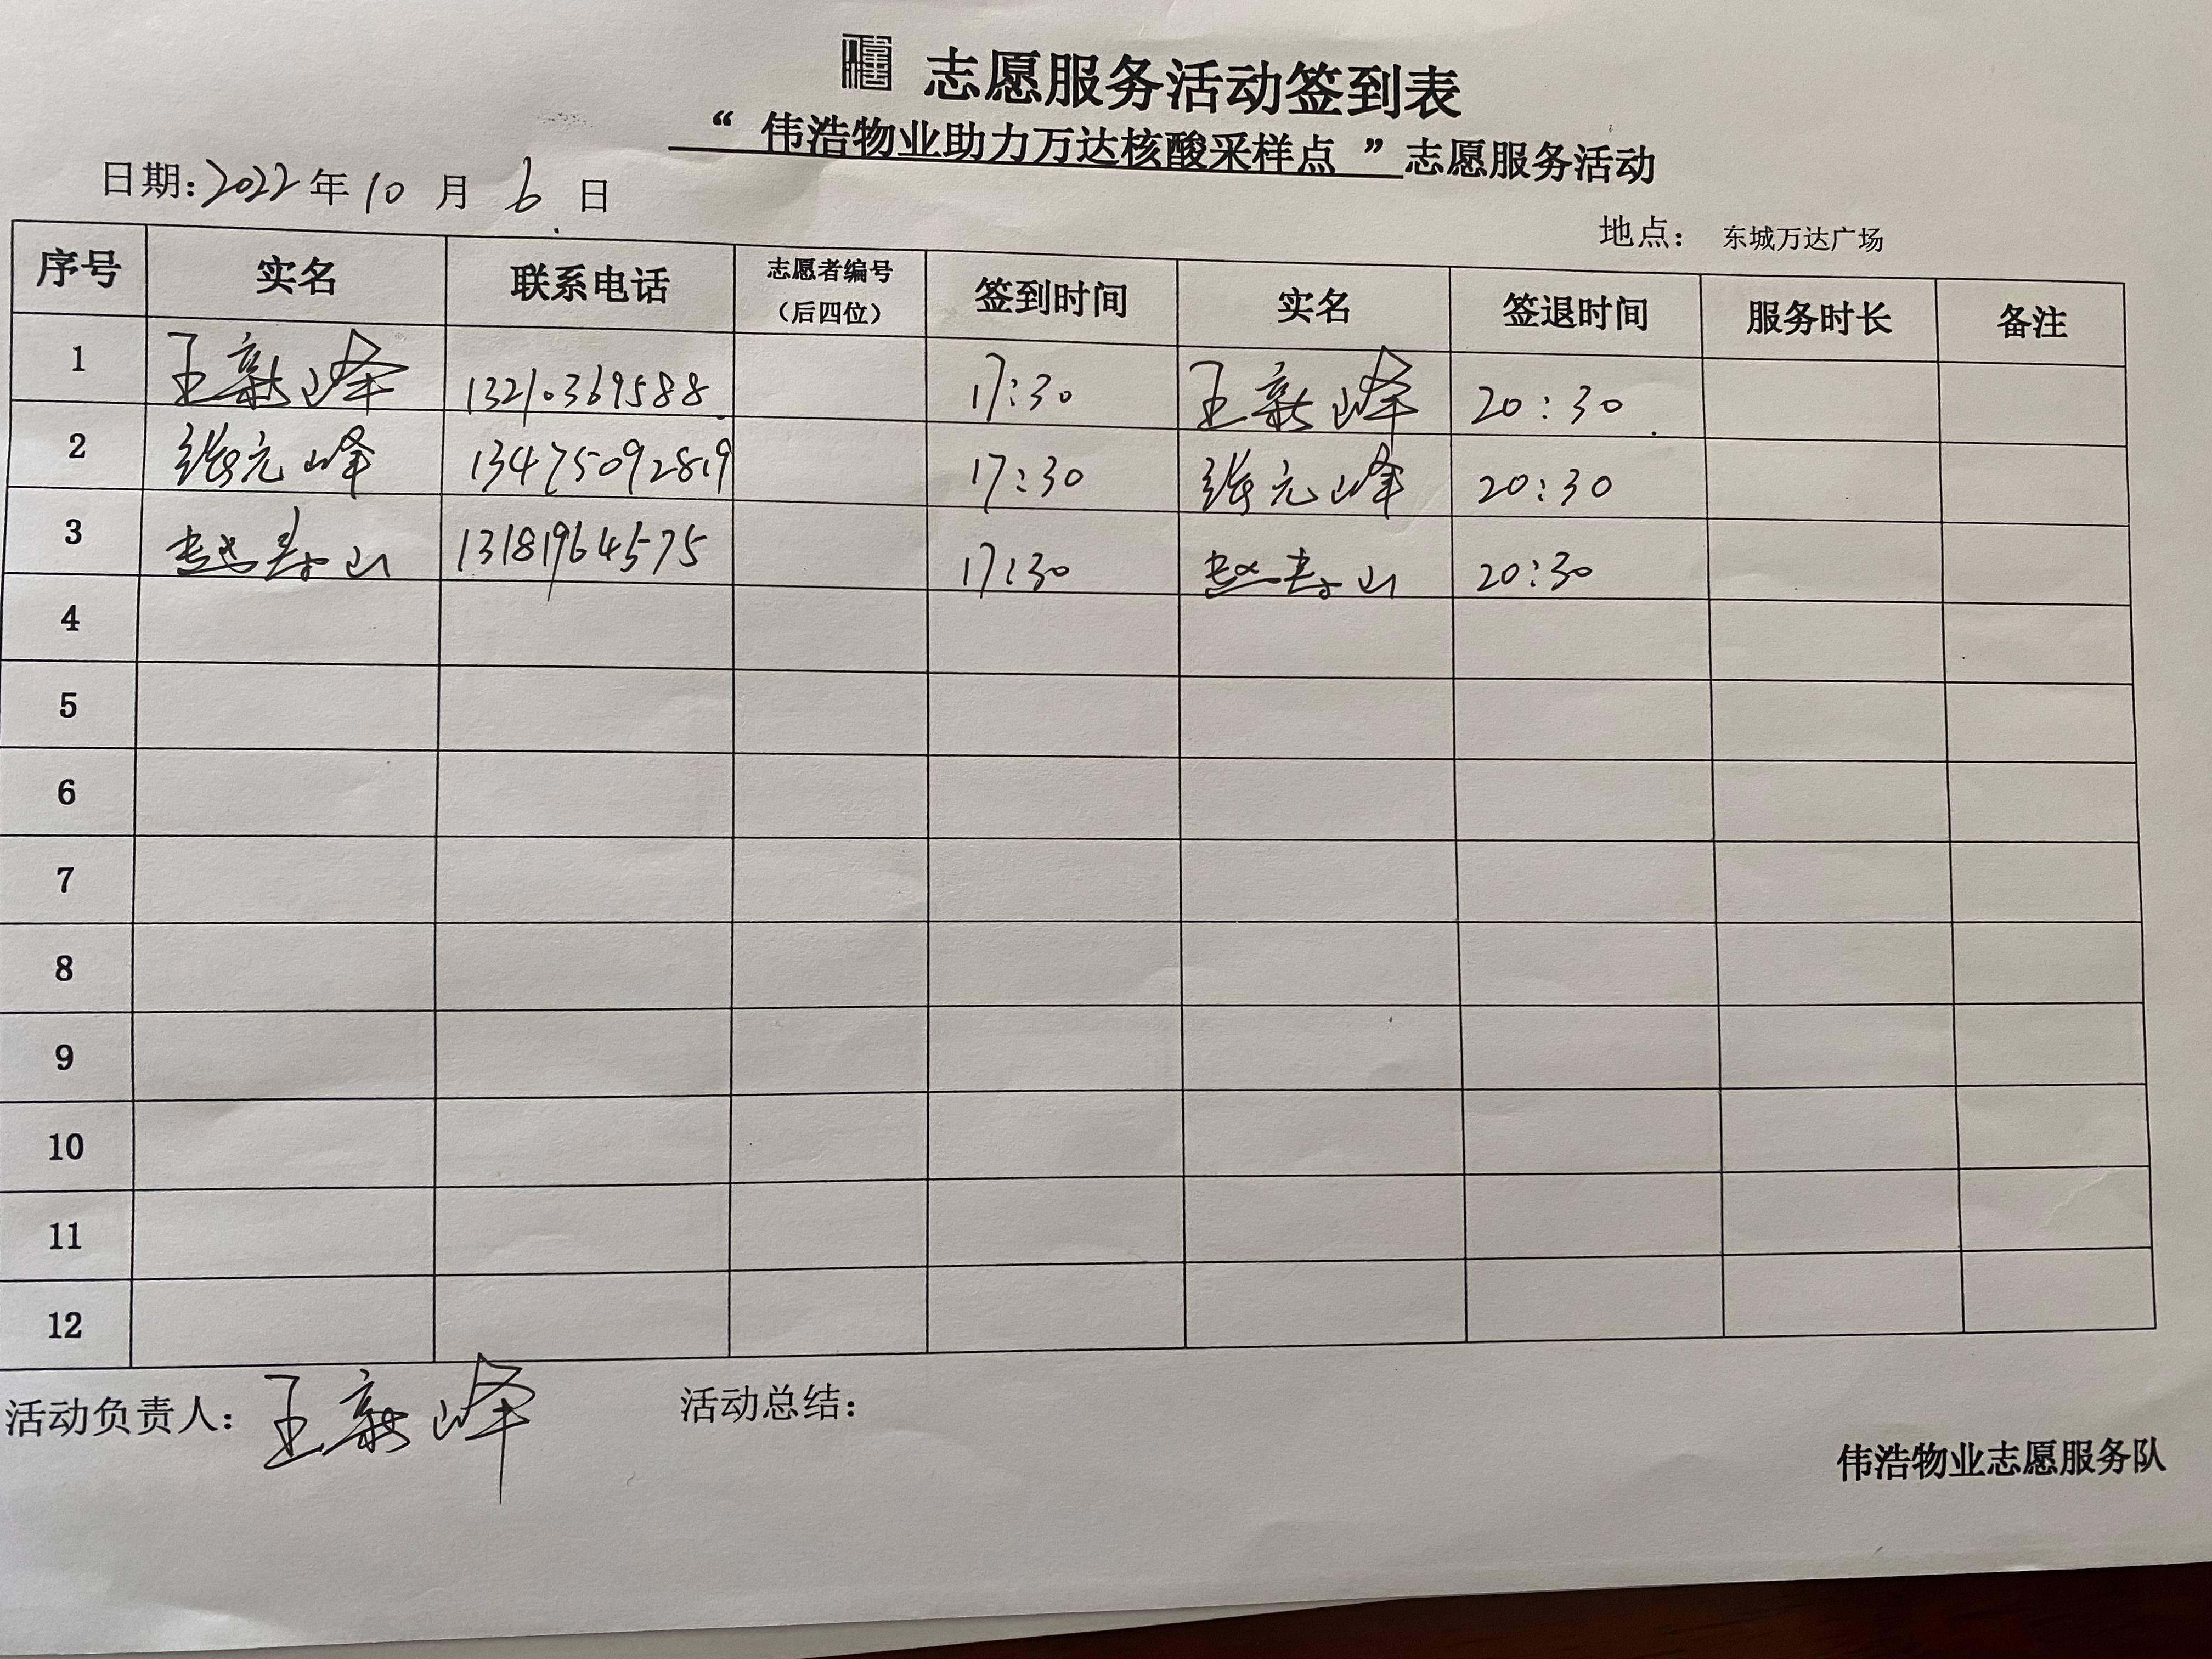 志愿服务活动签到表
“ 伟浩物业助力万达核酸采样点 ”志愿服务活动
日期:2022年10月6日
地点： 东城万达广场
序号 实名 联系电话 志愿者编号（后四位） 签到时间 实名 签退时间 服务时长 备注
1 王新峰 13210369588 17:30 王新峰 20:30
2 张元峰 13475092819 17:30 张元峰 20:30
3 赵寿山 13181964575 17:30 赵寿山 20:30
4
5
6
7
8
9
10
11
12
活动负责人：王新峰 活动总结：
伟浩物业志愿服务队